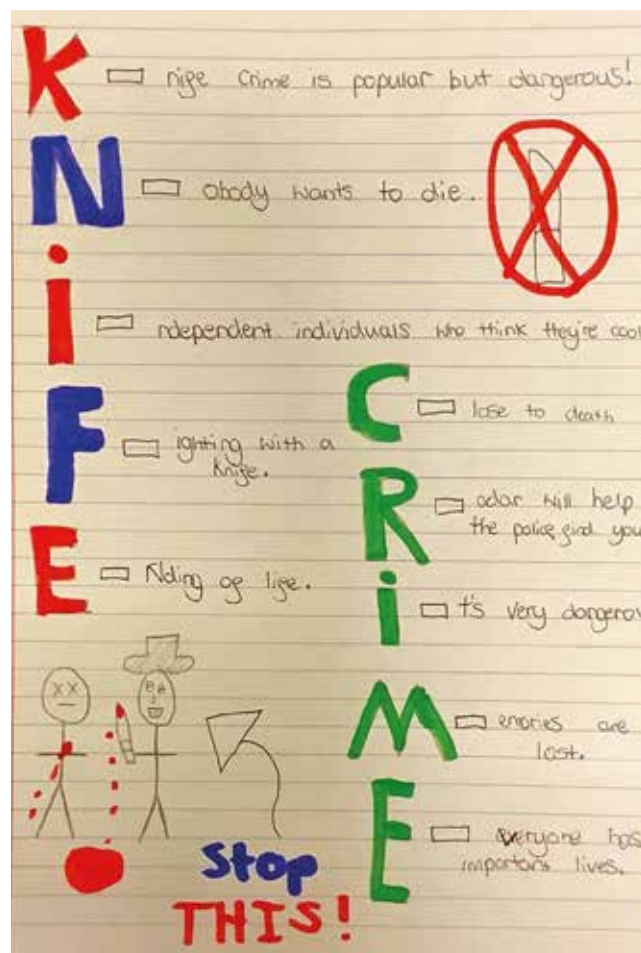 K nife Crime is popular but dangerous!
N obody wants to die.
i ndependent individuals who think they're cool
F ighting with a
knife.
E Nding of life.
C lose to death
R adar will help
the police find you
i t's very dangerou
M emories are
lost.
E veryone has
important lives.
Stop
THIS!